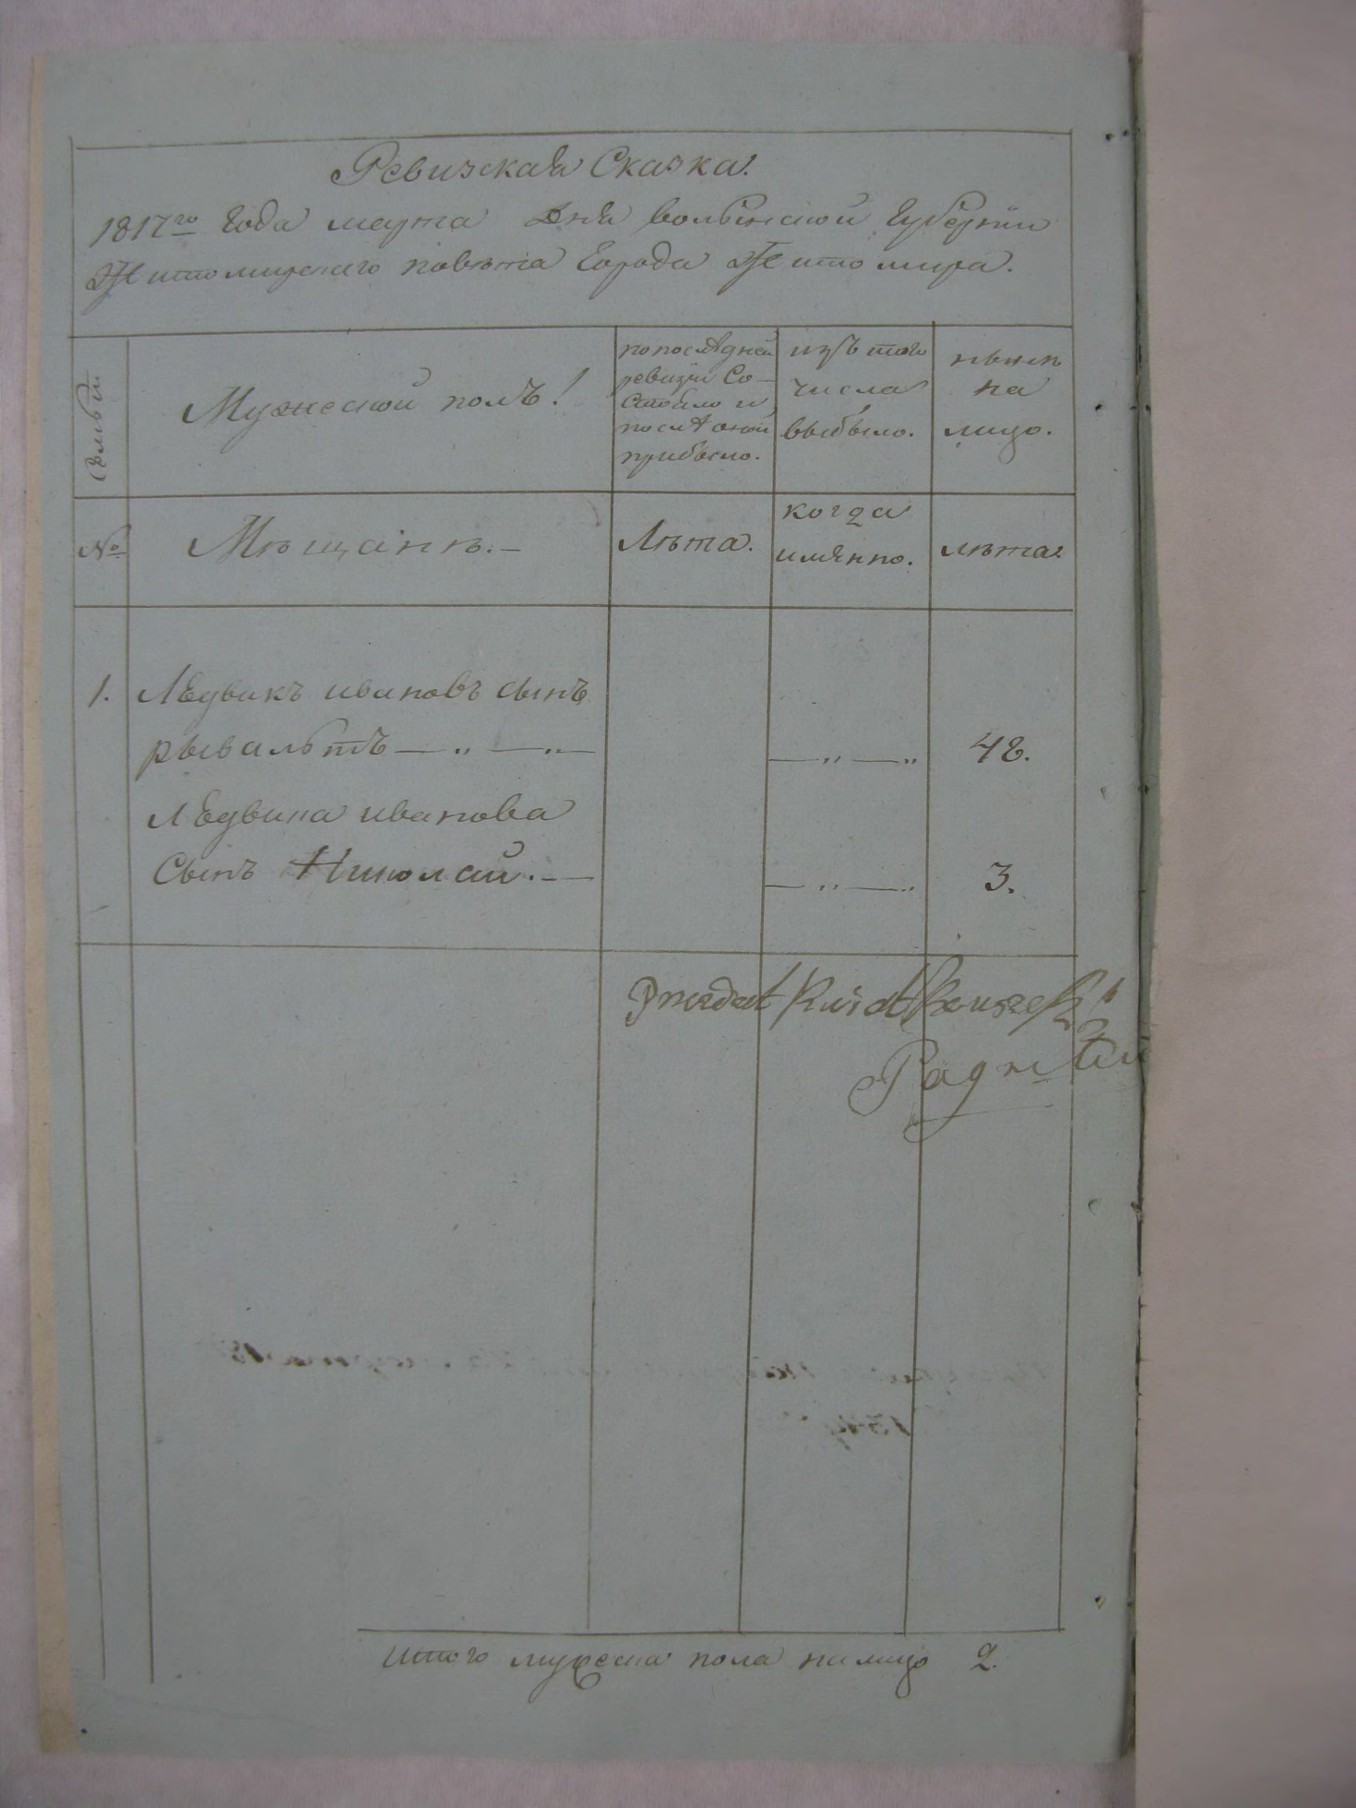 Ревизская Сказка.
1817го Года марта Дня волынской Губернии
Житомирского повѣта Города Житомира.
Сѣмьи
Мужеской полъ!
по послѣдней
ревизіи Со-
стояло и
послѣ оной
прибыло.
изъ того
числа
выбыло.
нынѣ
на
лицо.
№
Мѣщанѣ.-
Лѣта.
когда
имянно.
лѣта.
1. Лѣдвикъ ивановъ сынъ
рывальтъ — „ — „ — — „ — „ 48.
Лѣдвика иванова
Сынъ Николай. — — „ — „ 3.
итого мужеска пола налицо 2.